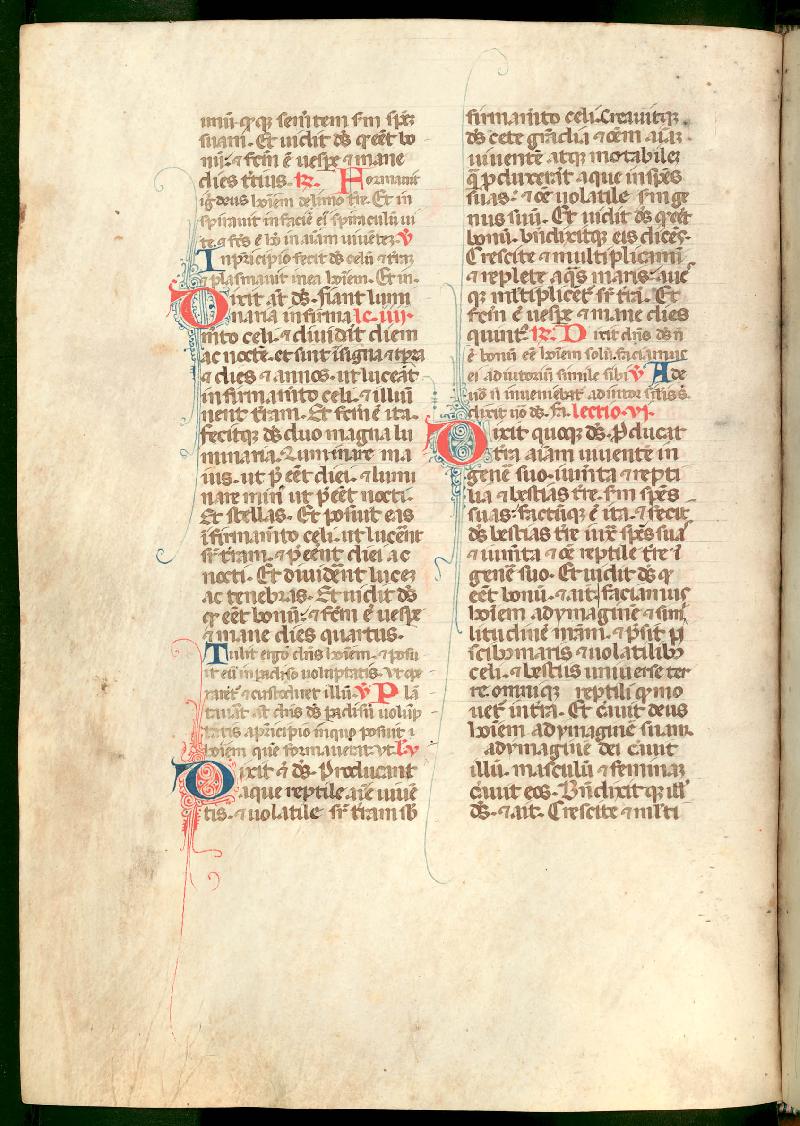 mū qꝫ qꝫ semītem sᷤm spēꝫ
suam. Et uidit dꝰ qꝫ eēt bo
nū. ⁊ fcm̄ ē uespe ⁊ mane
dies tꝰtius. R̃. Formauit
ig̃ deus hoīem de limo tr̃e. Et in
spirauit in faciē eī spiraculū ui
te. ⁊ fcs̄ ē hō in aīam uiuētez. ꝟ
In pͥncipio fecit dꝰ celū ⁊ trāz
⁊ plasmauit in ea hoīem. Et in.
Dixit aūt dꝰ. fiant lumi
naria in firma lc̃. iiij.
mēto celi. ⁊ diuidāt diem
ac noctē. et sint ī signa ⁊ tp̄ra
⁊ dies ⁊ annos. ut luceāt
in firmamēto celi. ⁊ illumī
nent trām. Et fcm̄ ē ita.
fecitqꝫ dꝰ duo magna lu
minaria. Luminare ma
ius. ut p̄eēt diei. ⁊ lumi
nare minꝰ ut p̄eēt nocti.
Et stellas. Et posuit eas
ī firmamēto celi. ut lucerēt
sr̄ trām. ⁊ p̄eēnt diei ac
nocti. Et diuidērēt lucez
ac tenebras. Et uidit dꝰ
qꝫ eēt bonū. ⁊ fcm̄ ē uespe
⁊ mane dies quartus.
Tulit ergo dn̄s hoīem. ⁊ posu
it eū in padiso uoluptatis. Vt ope
raret̃ ⁊ custodiret illū. ꝟ Plā
tauāt aūt dn̄s dꝰ padisū uolup
tatis a pͥncipio in quo posuit
hoīem quē formauerat. vt. l. v
Dixit ē dꝰ. Producant
aque reptile aīe uiuē
tis. ⁊ uolatile sr̄ trām sb
firmamēto celi. Creauitqꝫ
dꝰ cete grādia ⁊ oēm aīaꝫ
uiuentē atqꝫ motabilez
q̄ pduxerāt aque in spēs
suas. ⁊ oē uolatile sm̄ ge
nus suū. Et uidit dꝰ qꝫ eēt
bonū. bn̄dixitqꝫ eis dicēs.
Crescite ⁊ multiplicamī
⁊ replete aq̄s maris. aue
qꝫ ml̄tiplicet̃ sr̄ trā. Et
fcm̄ ē uespe ⁊ mane dies
quintꝰ. R̃. Dixit dn̄s dꝰ n̄
ē bonū eē hoīem solū. faciamus
ei adiutoriū simile sibi ꝟ Ade
uō n̄ inueniebat̃ adiutor silis s.
dixit uō dꝰ. fa. lectio. vj.
Dixit quoqꝫ dꝰ. Pducat
trā aīam uiuentē in
genē suo. iumēta ⁊ repti
lia ⁊ bestias tr̃e. sm̄ spēs
suas. factūqꝫ ē ita. ⁊ fecit
dꝰ bestias tr̃e iux̃ spēs suas
⁊ iumēta ⁊ oē reptile tr̃e ī
genē suo. Et uidit dꝰ qꝫ
eēt bonū. ⁊ ait. faciamus
hoīem ad ymaginē ⁊ simi
litudinē nr̄am. ⁊ p̄sit pi
scibꝫ maris ⁊ uolatilibꝫ
celi. ⁊ bestiis uniuerse ter
re. omniqꝫ reptili qꝫ mo
uet̃ in trā. Et cāuit deus
hoīem ad ymaginē suam.
ad ymaginē dei cāuit
illū. masculū ⁊ feminaꝫ
cāuit eos. Bn̄dixitqꝫ ill̄
dꝰ. ⁊ ait. Crescite ⁊ ml̄ti